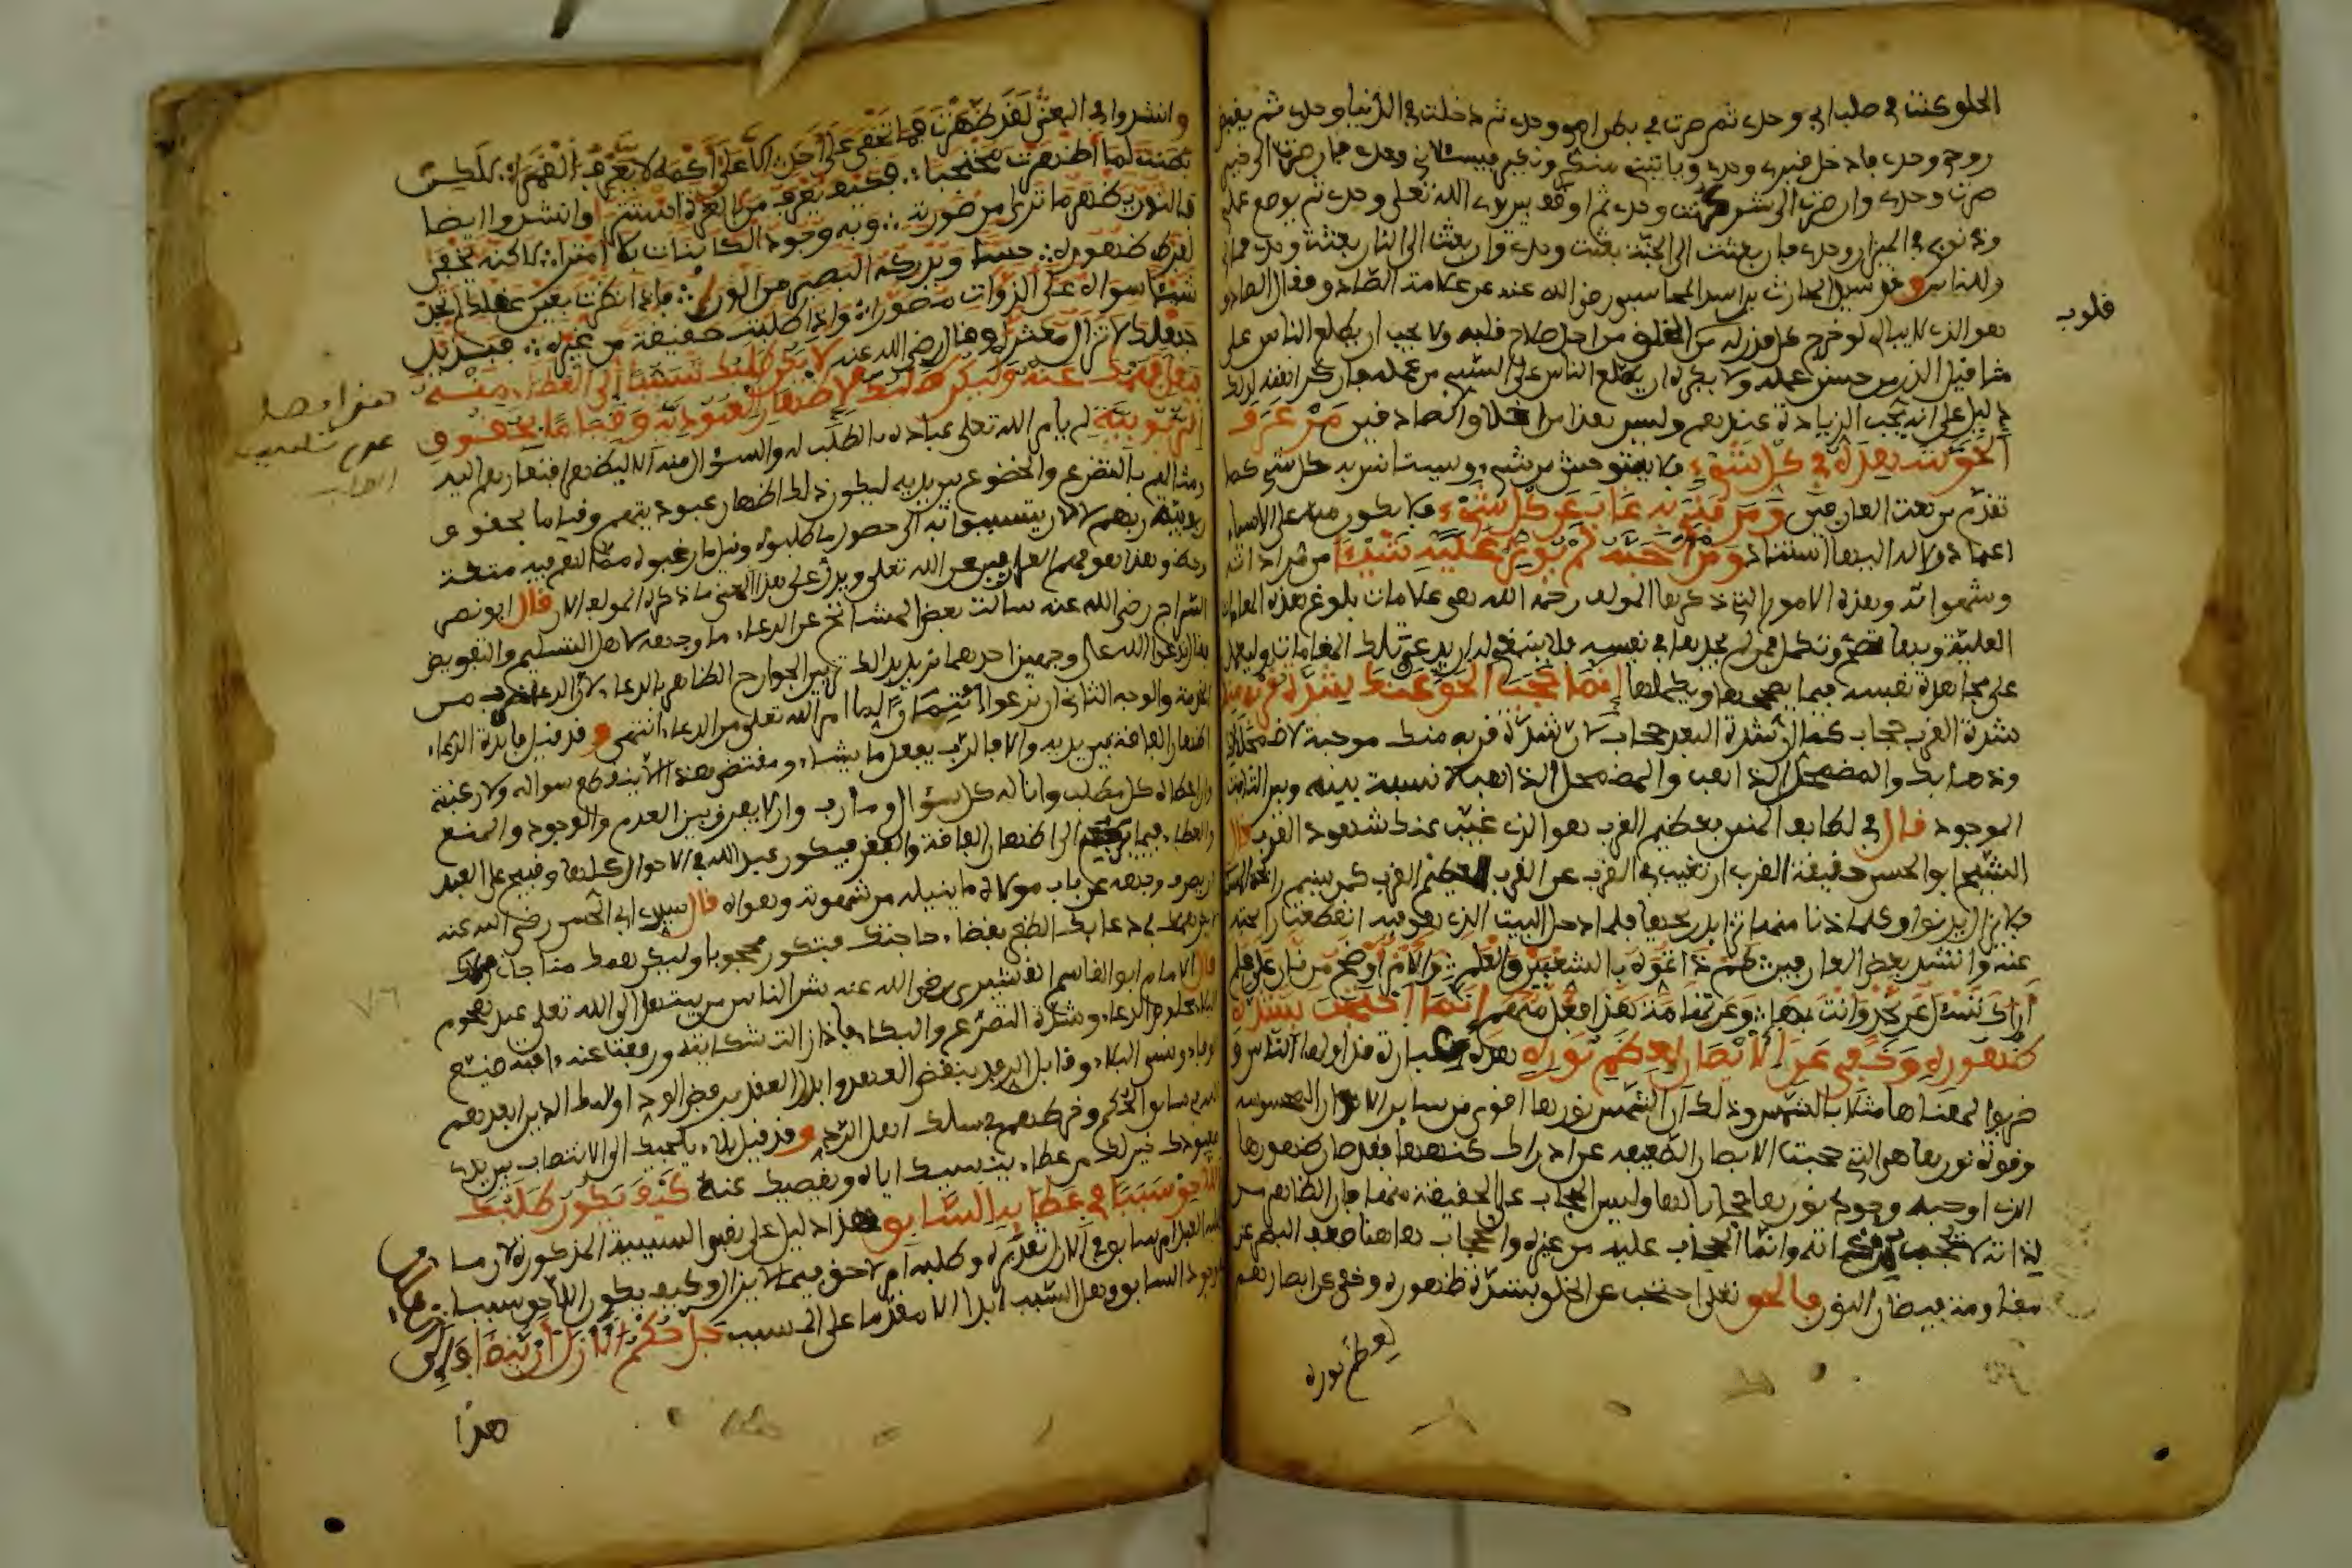 الخلق كنت في صلب ابي وحدي ثم صرت في بطن امي وحدي ثم دخلت في الدنيا وحدي ثم يقبض
روحي وحدي فادخل قبري وحدي وياتيني منكر ونكير فيسئلاني وحدي فان صرت الى خير
صرت وحدي وان صرت الى شر كنت وحدي ثم اوقف بين يدي الله تعلى وحدي ثم يوضع عملي
وذنوبي في الميزان وحدي فان بعثت الى الجنة بعثت وحدي وان بعثت الى النار بعثت وحدي فما لي
وللناس وقد سيل الحارث بن اسد المحاسبي رضي الله عنه عن علامة الصادق فقال الصادق
هو الذي لا يبالي لو خرج كل قدر له من الخلق من اجل صلاح قلبه ولا يحب ان يطلع الناس على
قلوب
مثاقيل الذر من حسن عمله ولا يكره ان يطلع الناس على السيئ من عمله فان كراهته لذلك
دليل على انه يحب الزيادة عندهم وليس هذا من اخلاق الصادقين من عرف
الحق شهده في كل شيء فلا يستوحش من شيء ويستانس به كل شيء كما
تقدم من نعت العارفين ومن فني به غاب عن كل شيء فلا يكون منه على الاشياء
اعتماد ولا له اليها استناد ومن احبه لم يوثر عليه شيئا من مراداته
وشهواته وهذه الامور التي ذكرها المولف رحمه الله هي علامات بلوغ هذه المقامات
العلية وبها تصح وتكمل فمن لم يجدها في نفسه فلا ينبغي له ان يدعي تلك المقامات وليعمل
على مجاهدة نفسه فيما يصححها ويكملها انما حجب الحق عنك شدة قربه منك
شدة القرب حجاب كما ان شدة البعد حجاب لان شدة قربه منك موجبة لاضمحلالك
وذهابك والمضمحل الذاهب لا نسبة بينه وبين الثابت
الموجود قال في لطائف المنن بعظيم القرب هو الذي غيب عنك شهود القرب قال
الشيخ ابو الحسن حقيقة القرب ان تغيب في القرب عن القرب لعظيم القرب كمن يشم رائحة المسك
فلا يزال يدنوا وكلما دنا منها تزايد ريحها فلما دخل البيت الذي هو فيه انقطعت رائحته
عنه وانشد بعض العارفين كم ذا تموه بالشعبين والعلم والامر اوضح من نار على علم
اراك تسئل عن نجد وانت بها وعن تهامة هذا فعل متهم انما احتجب لشدة
ظهوره وخفي عن الابصار لعظم نوره هذه عبارة تداولها الناس و
ضربوا لمعناها مثلا بالشمس وذلك ان الشمس نورها اقوى من سائر الانوار المحسوسة
وقوة نورها هي التي حجبت الابصار الضعيفة عن ادراك كنهها فقد صار ظهورها
الذي اوجبه وجود نورها حجابا لها وليس الحجاب على الحقيقة منها فان الظاهر من
لذاته لا تحجب ذاته وانما الحجاب عليه من غيره والحجاب هاهنا ضعف البصر عن
مقاومة فيضان النور فالحق تعلى احتجب عن الخلق بشدة ظهوره وخفي عن ابصارهم
لعظم نوره
وانشدوا في المعنى لقد ظهرت فما تخفى على احد الا على اكمه لا يعرف القمرا لكن
بطنت لما اظهرت محتجبا فكيف يعرف من بالعزة استترا وانشدوا ايضا
فبالنور يظهر ما ترى من صورة وبه وجود الكائنات بلا امترا لكنه يخفى
لفرط ظهوره حسا ويدركه البصير من الورى فاذا نظرت بعين عقلك لم تجد
شيئا سواه على الذوات مصورا واذا طلبت حقيقة من غيره فبذيل
جهلك لا تزال معثرا وقال رضي الله عنه لا يكن طلبك تسببا الى العطاء منه
فيقل فهمك عنه وليكن طلبك لاظهار العبودية وقياما بحقوق
الربوبية لم يامر الله تعلى عباده بالطلب له والسؤال منه الا ليظهر افتقارهم اليه
هنا يصل
عدم تسبب
الطلب
ومثالهم بالتضرع والخضوع بين يديه ليكون ذلك اظهار عبوديتهم وقياما بحقوق
ربوبية ربهم لا لان يتسببوا به الى حصول ما طلبوه ونيل ما رغبوه مما لهم فيه منفعة
وحظ وهذا هو فهم العارفين عن الله تعلى ويدل على هذا المعنى ما ذكره المولف الان قال ابو نصر
السراج رضي الله عنه سالت بعض المشائخ عن الدعاء ما وجهه لاهل التسليم والتفويض
فقال تدعوا الله على وجهين احدهما تريد بذلك تزيين الجوارح الظاهرة بالدعاء لان الدعاء ضرب من
الخدمة والوجه الثاني ان تدعوا ائتمارا لما امر الله تعلى من الدعاء انتهى وقد قيل فائدة الدعاء
اظهار الفاقة بين يديه والا فالرب يفعل ما يشاء ومقتضى هذا الا ينقطع سواله ولا رغبته
وان اعطاه كل مطلب واناله كل سؤال ومارب وان لا يفرق بين العدم والوجود والمنع
والعطاء فيما يرجع الى اظهار الفاقة والفقر فيكون عبد الله في الاحوال كلها وقبيح على العبد
ان يصرف وجهه عن باب مولاه ما ينيله من شهوته وهواه قال سيدي ابي الحسن رضي الله عنه
لا يكن همك في دعائك الظفر بقضاء حاجتك فتكون محجوبا وليكن همك مناجاة مولاك
قال الامام ابو القاسم القشيري رضي الله عنه شر الناس من يبتهل الى الله تعلى عند هجوم
البلاء بخلوص الدعاء وشدة التضرع والبكاء فاذا زالت شكايته ورفعت عنه افته ضيع
الوفاء ونسي البلاء وقابل الرفد بنقض العهد وابدل العقد برفض الود اولئك الذين ابعدهم
في سابق الحكم وخرطهم في سلك اهل الرد وقد قيل بلاء يلجيك الى الانتصاب بين يدي
معبودك خير لك من عطاء ينسيك اياه ويقصيك عنه كيف يكون طلبك
اللاحق سببا في عطائه السابق هذا دليل على نفي السببية المذكورة لان ما
وجود السابق وهل السبب ابدا الا مقدما على المسبب جل حكم الازل ان ينضاف الى
هذا